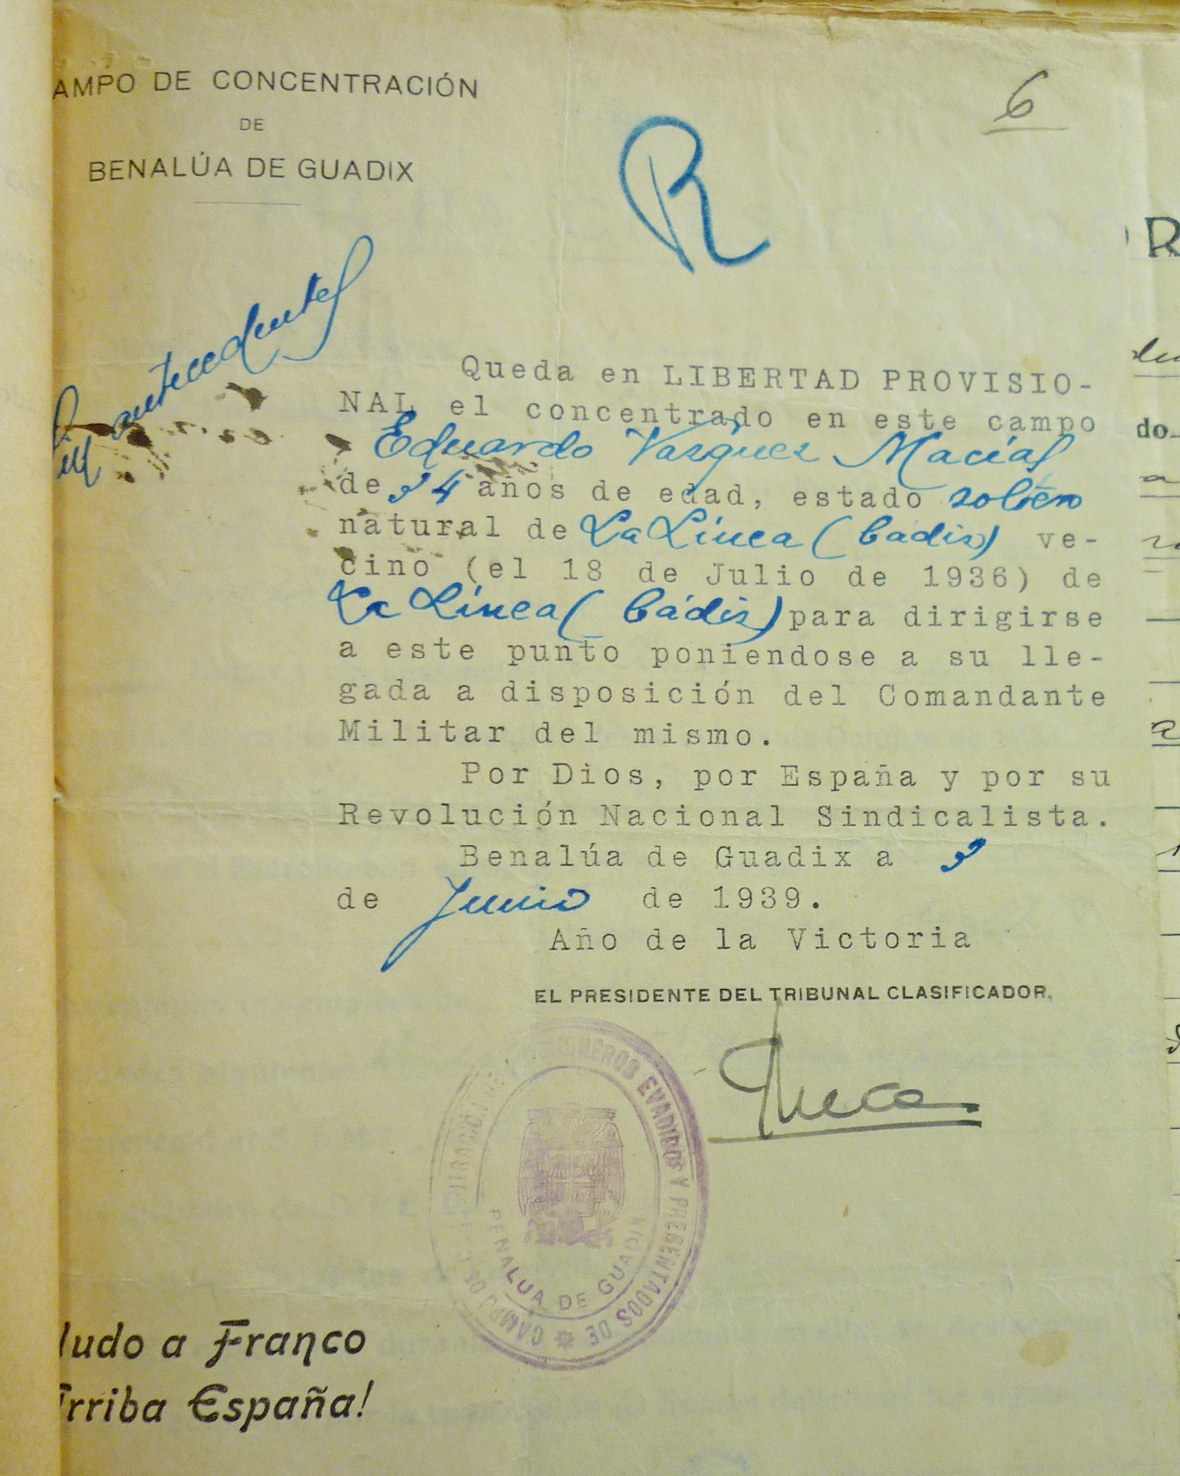 AMPO DE CONCENTRACIÓN
DE
BENALÚA DE GUADIX
6
R
Sin antecedentes
Queda en LIBERTAD PROVISIO-
NAL el concentrado en este campo
Eduardo Vazquez Macías
de 34 años de edad, estado soltero
natural de La Línea (Cádiz) ve-
cino (el 18 de Julio de 1936) de
La Línea (Cádiz) para dirigirse
a este punto poniendose a su lle-
gada a disposición del Comandante
Militar del mismo.
Por Dios, por España y por su
Revolución Nacional Sindicalista.
Benalúa de Guadix a 3
de Junio de 1939.
Año de la Victoria
EL PRESIDENTE DEL TRIBUNAL CLASIFICADOR,
CAMPO DE PRISIONEROS EVADIDOS Y PRESENTADOS DE
BENALUA DE GUADIX
ludo a Franco
rriba España!
R
do